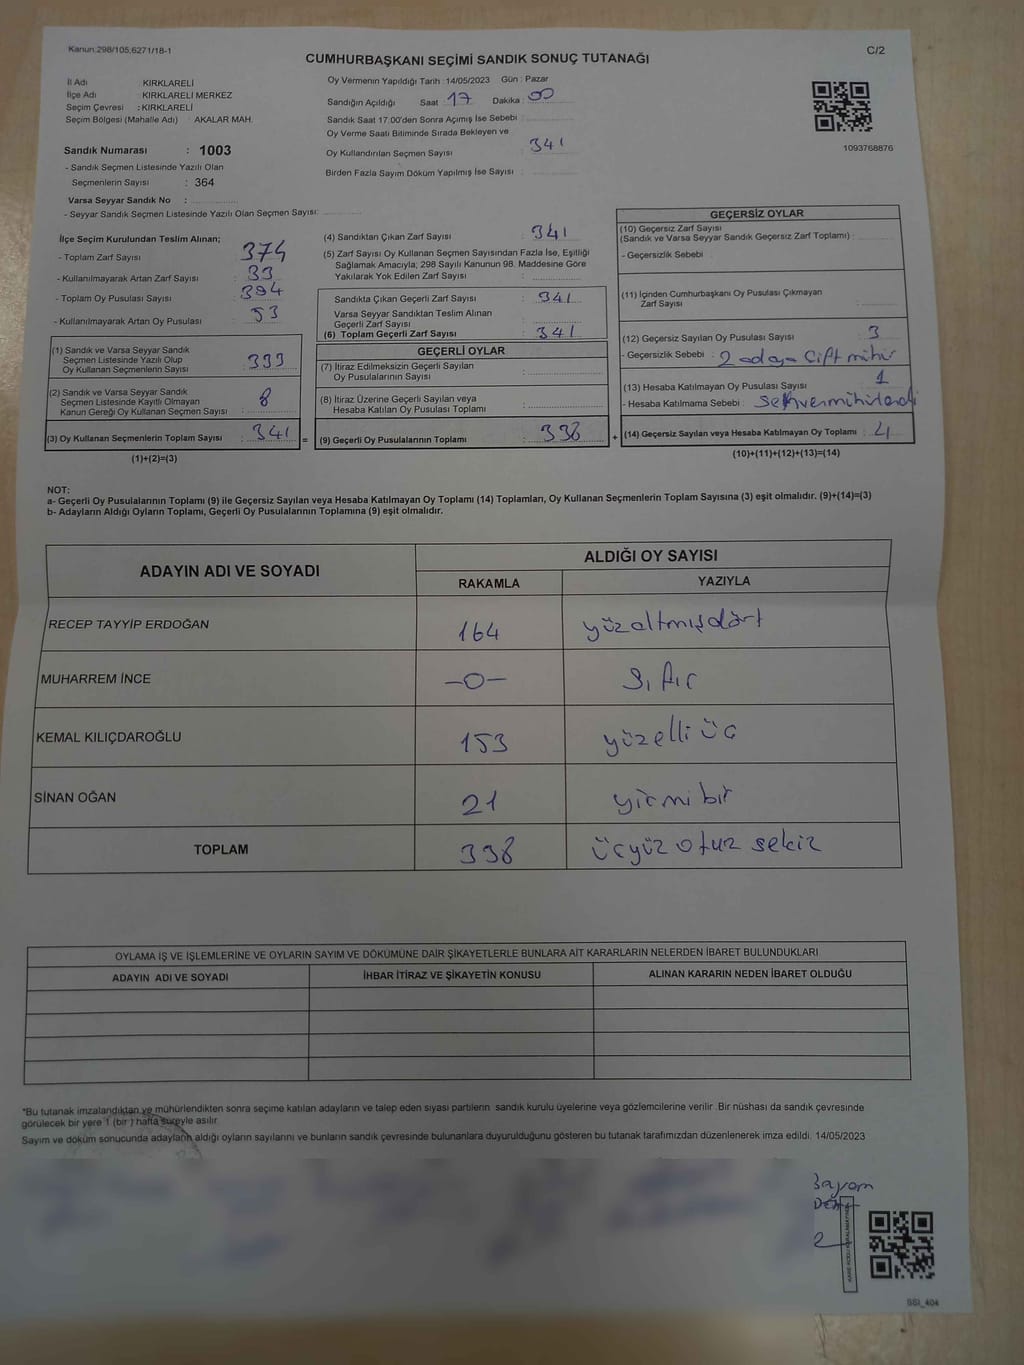 Kanun:298/105;6271/18-1
C/2
CUMHURBAŞKANI SEÇİMİ SANDIK SONUÇ TUTANAĞI
İl Adı : KIRKLARELİ
İlçe Adı : KIRKLARELİ MERKEZ
Seçim Çevresi : KIRKLARELİ
Seçim Bölgesi (Mahalle Adı) : AKALAR MAH.
Sandık Numarası : 1003
- Sandık Seçmen Listesinde Yazılı Olan
Seçmenlerin Sayısı : 364
Varsa Seyyar Sandık No :
- Seyyar Sandık Seçmen Listesinde Yazılı Olan Seçmen Sayısı:
Oy Vermenin Yapıldığı Tarih : 14/05/2023 Gün : Pazar
Sandığın Açıldığı Saat : 17 Dakika : 00
Sandık Saat 17.00'den Sonra Açımış İse Sebebi :
Oy Verme Saati Bitiminde Sırada Bekleyen ve
Oy Kullandırılan Seçmen Sayısı : 341
Birden Fazla Sayım Döküm Yapılmış İse Sayısı :
1093768876
İlçe Seçim Kurulundan Teslim Alınan;
- Toplam Zarf Sayısı : 374
- Kullanılmayarak Artan Zarf Sayısı : 33
- Toplam Oy Pusulası Sayısı : 394
- Kullanılmayarak Artan Oy Pusulası : 53
(1) Sandık ve Varsa Seyyar Sandık
Seçmen Listesinde Yazılı Olup
Oy Kullanan Seçmenlerin Sayısı : 333
(2) Sandık ve Varsa Seyyar Sandık
Seçmen Listesinde Kayıtlı Olmayan
Kanun Gereği Oy Kullanan Seçmen Sayısı : 8
(3) Oy Kullanan Seçmenlerin Toplam Sayısı : 341 =
(1)+(2)=(3)
(4) Sandıktan Çıkan Zarf Sayısı : 341
(5) Zarf Sayısı Oy Kullanan Seçmen Sayısından Fazla İse, Eşitliği
Sağlamak Amacıyla; 298 Sayılı Kanunun 98. Maddesine Göre
Yakılarak Yok Edilen Zarf Sayısı :
Sandıkta Çıkan Geçerli Zarf Sayısı : 341
Varsa Seyyar Sandıktan Teslim Alınan
Geçerli Zarf Sayısı :
(6) Toplam Geçerli Zarf Sayısı : 341
GEÇERLİ OYLAR
(7) İtiraz Edilmeksizin Geçerli Sayılan
Oy Pusulalarının Sayısı :
(8) İtiraz Üzerine Geçerli Sayılan veya
Hesaba Katılan Oy Pusulası Toplamı :
(9) Geçerli Oy Pusulalarının Toplamı : 338 +
GEÇERSİZ OYLAR
(10) Geçersiz Zarf Sayısı
(Sandık ve Varsa Seyyar Sandık Geçersiz Zarf Toplamı) :
- Geçersizlik Sebebi :
(11) İçinden Cumhurbaşkanı Oy Pusulası Çıkmayan
Zarf Sayısı :
(12) Geçersiz Sayılan Oy Pusulası Sayısı : 3
- Geçersizlik Sebebi : 2 adaya Çift mühür
(13) Hesaba Katılmayan Oy Pusulası Sayısı : 1
- Hesaba Katılmama Sebebi :
(14) Geçersiz Sayılan veya Hesaba Katılmayan Oy Toplamı : 4
(10)+(11)+(12)+(13)=(14)
NOT:
a- Geçerli Oy Pusulalarının Toplamı (9) ile Geçersiz Sayılan veya Hesaba Katılmayan Oy Toplamı (14) Toplamları, Oy Kullanan Seçmenlerin Toplam Sayısına (3) eşit olmalıdır. (9)+(14)=(3)
b- Adayların Aldığı Oyların Toplamı, Geçerli Oy Pusulalarının Toplamına (9) eşit olmalıdır.
ADAYIN ADI VE SOYADI
ALDIĞI OY SAYISI
RAKAMLA YAZIYLA
RECEP TAYYİP ERDOĞAN 164 yüzaltmışdört
MUHARREM İNCE -0- Sıfır
KEMAL KILIÇDAROĞLU 153 yüzelli üç
SİNAN OĞAN 21 yirmi bir
TOPLAM 338 üçyüz otuz sekiz
OYLAMA İŞ VE İŞLEMLERİNE VE OYLARIN SAYIM VE DÖKÜMÜNE DAİR ŞİKAYETLERLE BUNLARA AİT KARARLARIN NELERDEN İBARET BULUNDUKLARI
ADAYIN ADI VE SOYADI İHBAR İTİRAZ VE ŞİKAYETİN KONUSU ALINAN KARARIN NEDEN İBARET OLDUĞU
*Bu tutanak imzalandıktan ve mühürlendikten sonra seçime katılan adayların ve talep eden siyasi partilerin sandık kurulu üyelerine veya gözlemcilerine verilir. Bir nüshası da sandık çevresinde
görülecek bir yere 1 (bir) hafta süreyle asılır.
Sayım ve döküm sonucunda adayların aldığı oyların sayılarını ve bunların sandık çevresinde bulunanlara duyurulduğunu gösteren bu tutanak tarafımızdan düzenlenerek imza edildi. 14/05/2023
SSI_404